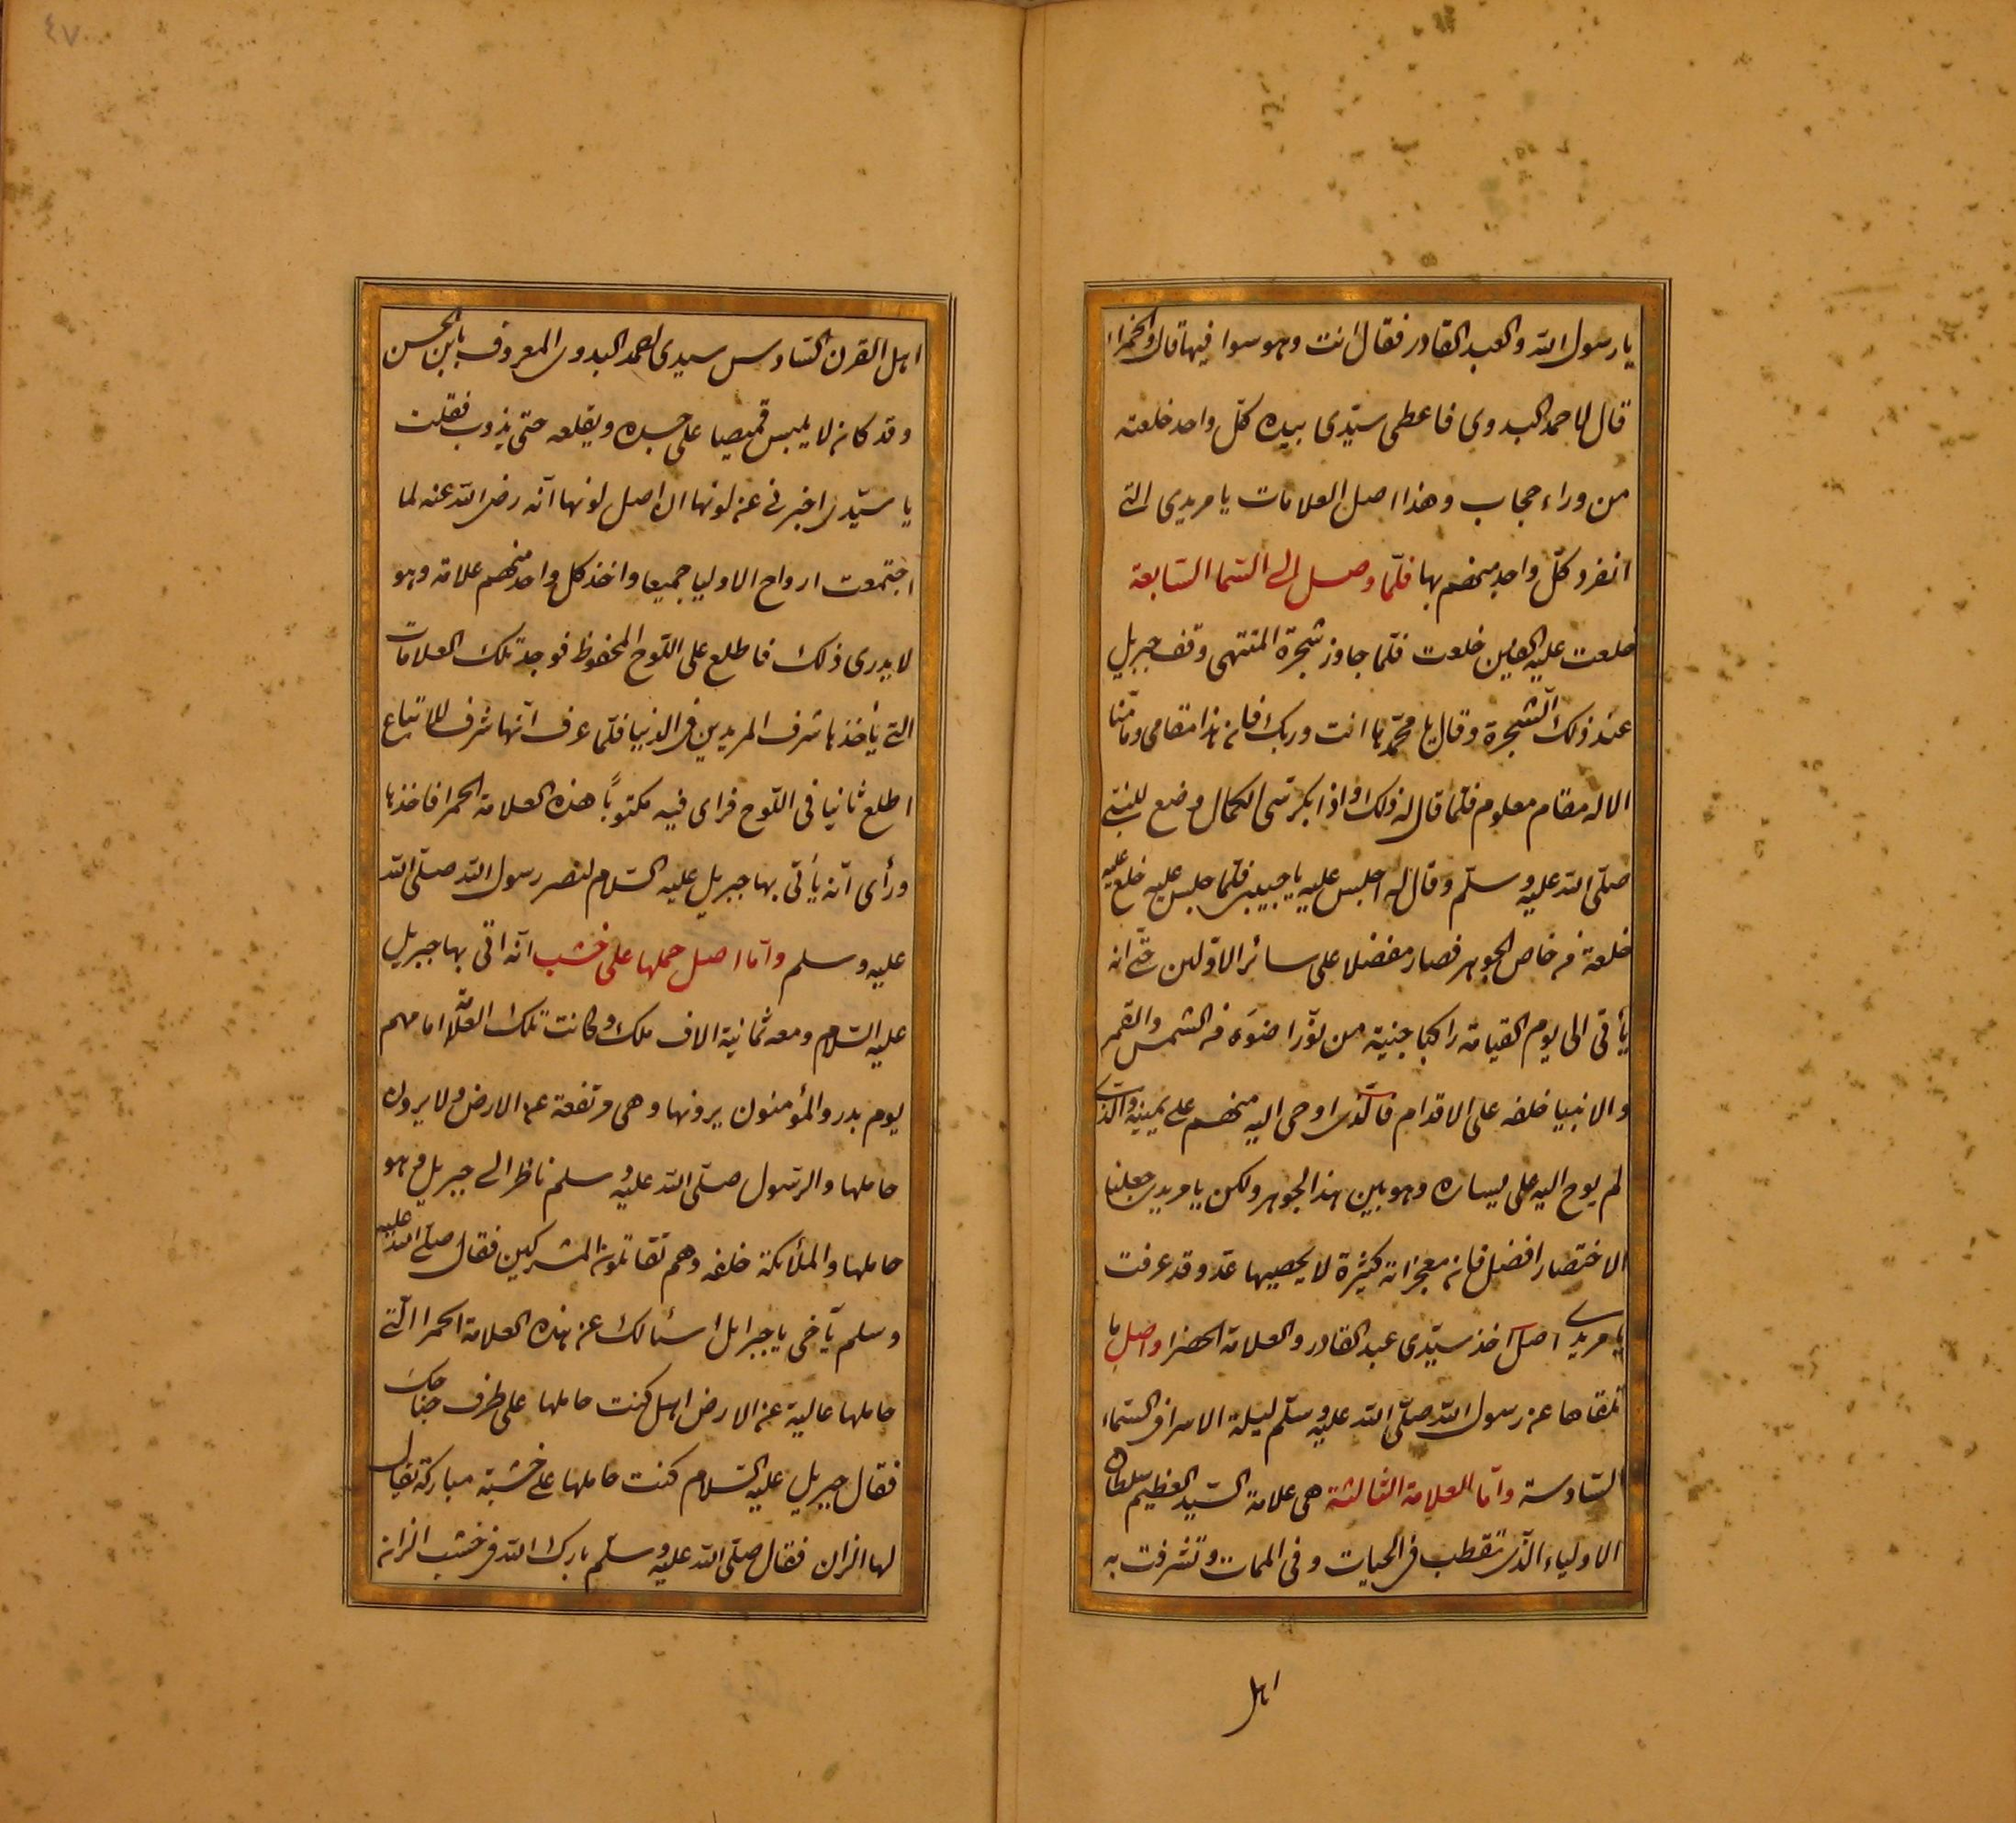 يا رسول الله والعبد القادر فقال انت وهو سوا فيها قال والحمرا
قال لاحمد البدوى فاعطى سيّدى بيده كلّ واحد خلعته
من وراء حجاب وهذا اصل العلامات يا مريدى التى
انفرد كلّ واحد منهم بها فلمّا وصل الى السّما السّابعة
خلعت عليه العين خلعت فلمّا جاوز شجرة المنتهى وقف جبريل
عند ذلك الشجرة وقال يا محمّد ها انت وربك فان هذا مقامى وما منّا
الا له مقام معلوم فلمّا قال له ذلك واذا بكرسى الكمال وضع للنبى
صلّى الله عليه وسلّم وقال له اجلس عليه يا حبيبى فلمّا جلس عليه خلع عليه
خلعة من خاص الجوهر فصار مفضلا على سائر الاوّلين حتّى انه
يأتى الى يوم القيامة راكبا جنبة من نوّر اضوَء من الشمس والقمر
والانبيا خلفه على الاقدام فالّذى اوحى اليه منهم على يمينه والّذى
لم يوح اليه على يساره وهو بين هذا الجوهر ولكن يا مريدى جعلنا
الاختصار افضل فان معجزاته كثيرة لا يحصيها عدّ وقد عرفت
يا مريدى اصل اخذ سيّدى عبد القادر والعلامة الخضرا واصل ما
تلقاها عن رسول الله صلّى الله عليه وسلّم ليلة الاسرا فى السّماء
السّادسة وامّا العلامة الثالثة هى علامة السّيد العظيم سلطان
الاولياء الّذى تقطب فى الحيات وفى الممات وتشرفت به
اهل
٤٧
اهل القرن السّادس سيدى احمد البدوى المعروف بابن الحسن
وقد كان لا يلبس قميصا على جسده ويقلعه حتى يذوب فقلت
يا سيّدى اخبرنى عن لونها ان اصل لونها انّه رضى الله عنه لما
اجتمعت ارواح الاوليا جميعا واخذ كل واحد منهم علامة وهو
لا يدرى ذلك فاطلع على اللّوح المحفوظ فوجد تلك العلامات
التى يأخذها شرف المريدين فى الدنيا فلمّا عرف انّها شرف للاتباع
اطلع ثانيا فى اللّوح فراى فيه مكتوبًا هذه العلامة الحمرا فاخذها
ورأى انّه يأتى بها جبريل عليه السّلام لنصر رسول الله صلّى الله
عليه وسلم وامّا اصل حملها على خشب انّه اتى بها جبريل
عليه السّلام ومعه ثمانية الاف ملك وكانت تلك العلّامة امامهم
يوم بدر والمؤمنون يرونها وهى مرتفعة عن الارض ولا يرون
حاملها والرّسول صلّى الله عليه وسلم ناظر الى جبريل وهو
حاملها والملائكة خلفه وهم تقاتلون المشركين فقال صلّى الله عليه
وسلم يآخى يا جبرايل اسئالك عن هذه العلامة الحمرا الّتى
حاملها عالية عن الارض اهل كنت حاملها على طرف جناحك
فقال جبريل عليه السّلام كنت حاملها على خشبة مباركة يقال
لها الزان فقال صلّى الله عليه وسلّم بارك الله فى خشب الزان